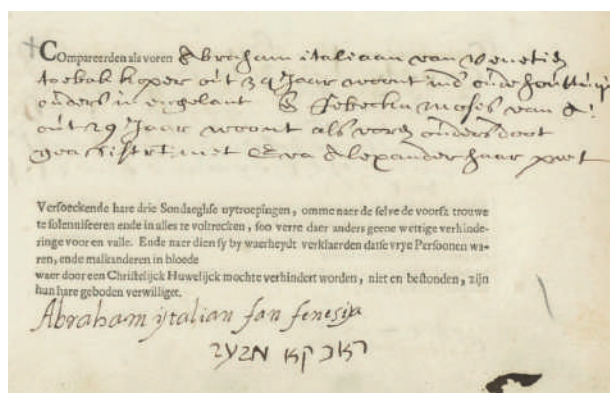 COmpareerden als voren Abraham italiaan van Venetien
toebak koper out 39 Jaar woont inde oude houttuijn
ouders in engelant & Rebecka Moses van A:
out 29 Jaar woont als voren ouders doot
geassistrt met Eva Alexander haar
Versoeckende hare drie Sondaeghse uytroepingen, omme naer de selve de voorsz trouwe
te solemniseeren ende in alles te voltrecken, soo verre daer anders geene wettige verhinde-
ringe voor en valle. Ende naer dien sy by waerheydt verklaerden datse vrye Persoonen wa-
ren, ende malkanderen in bloede
waer door een Christelijck Huwelijck mochte verhindert worden, niet en bestonden, zijn
hun hare geboden verwilliget.
Abraham ijtalian fan fenesija